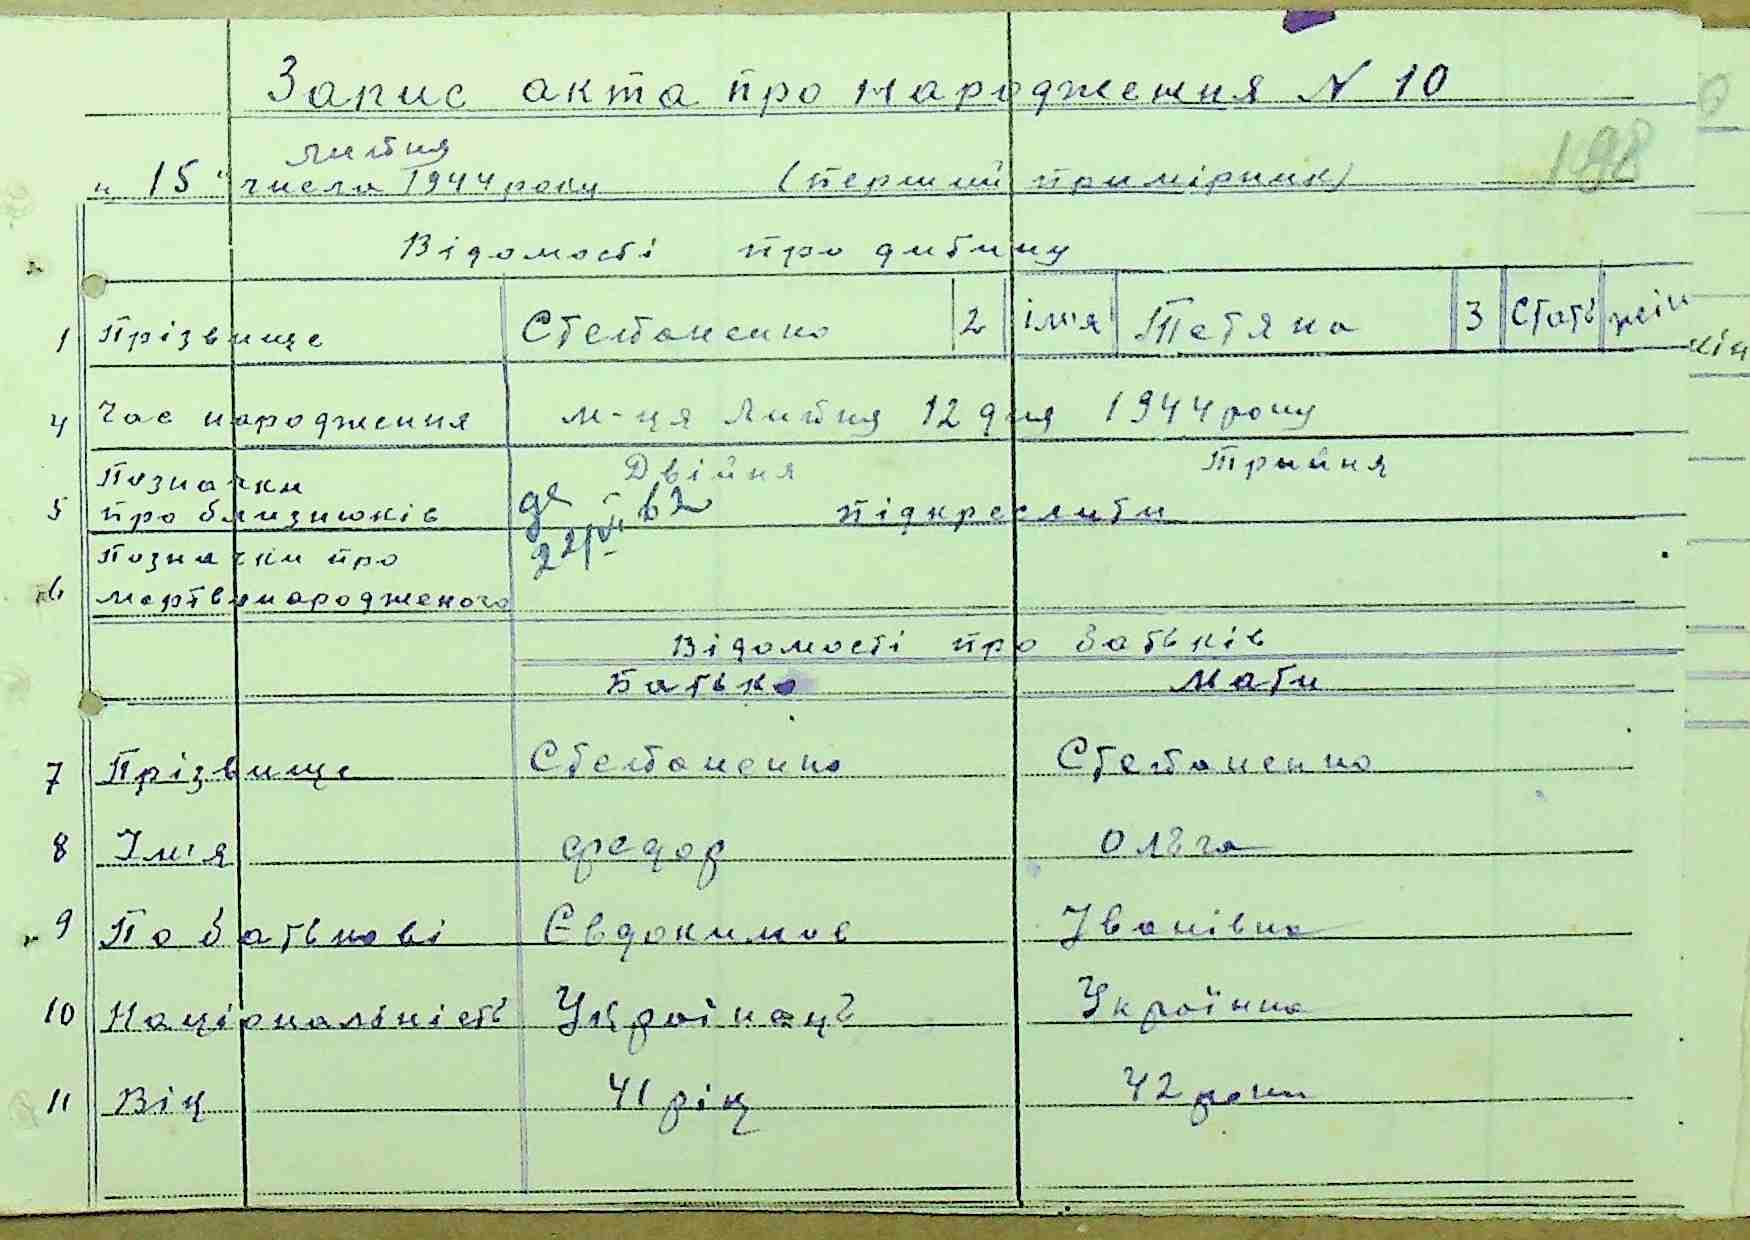 Запис акта про народження N 10
липня
198
"15" числа 1944 року (перший примірник)
Відомості про дитину
1 Прізвище Степаненко 2 ім'я Тетяна 3 Стать жін
4 Час народження м-ця липня 12 дня 1944 року
Двійня Трійня
Позначки
5 про близнюків підкреслити
Позначки про
6 мертвонародженого
Відомості про батьків
Батько Мати
7 Прізвище Степаненко Степаненко
8 Ім'я Федор Ольга
9 По батькові Євдокимов Іванівна
10 Національність Українець Українка
11 Вік 41 рік 42 роки